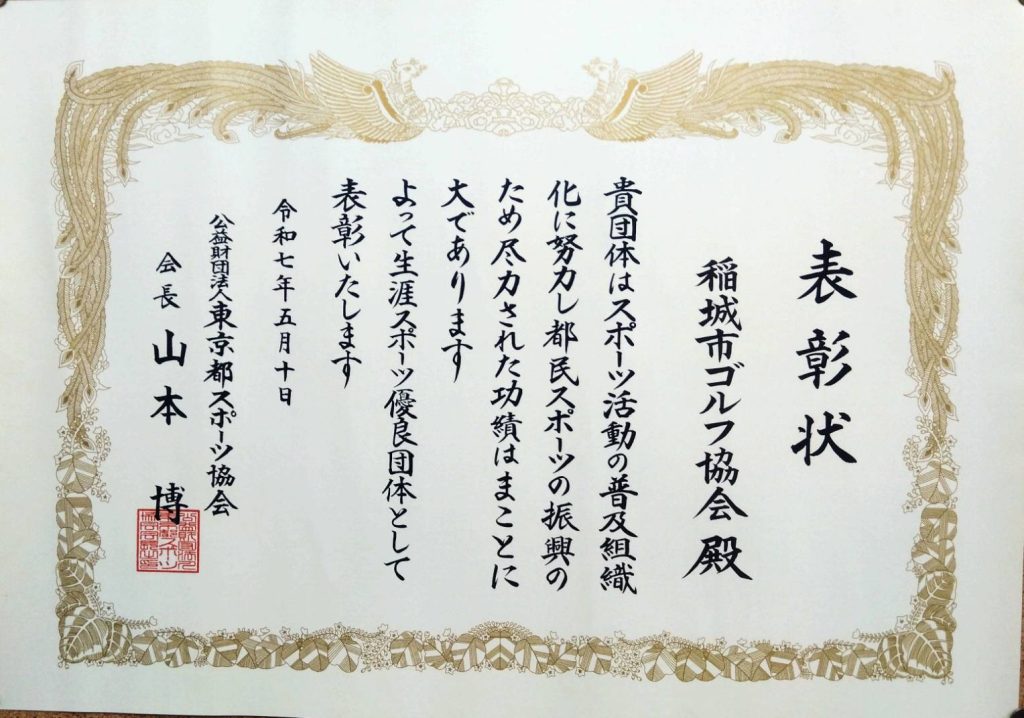 表彰状
稲城市ゴルフ協会殿
貴団体はスポーツ活動の普及組織
化に努力し都民スポーツの振興の
ため尽力された功績はまことに
大であります
よって生涯スポーツ優良団体として
表彰いたします
令和七年五月十日
公益財団法人東京都スポーツ協会
会長 山本 博